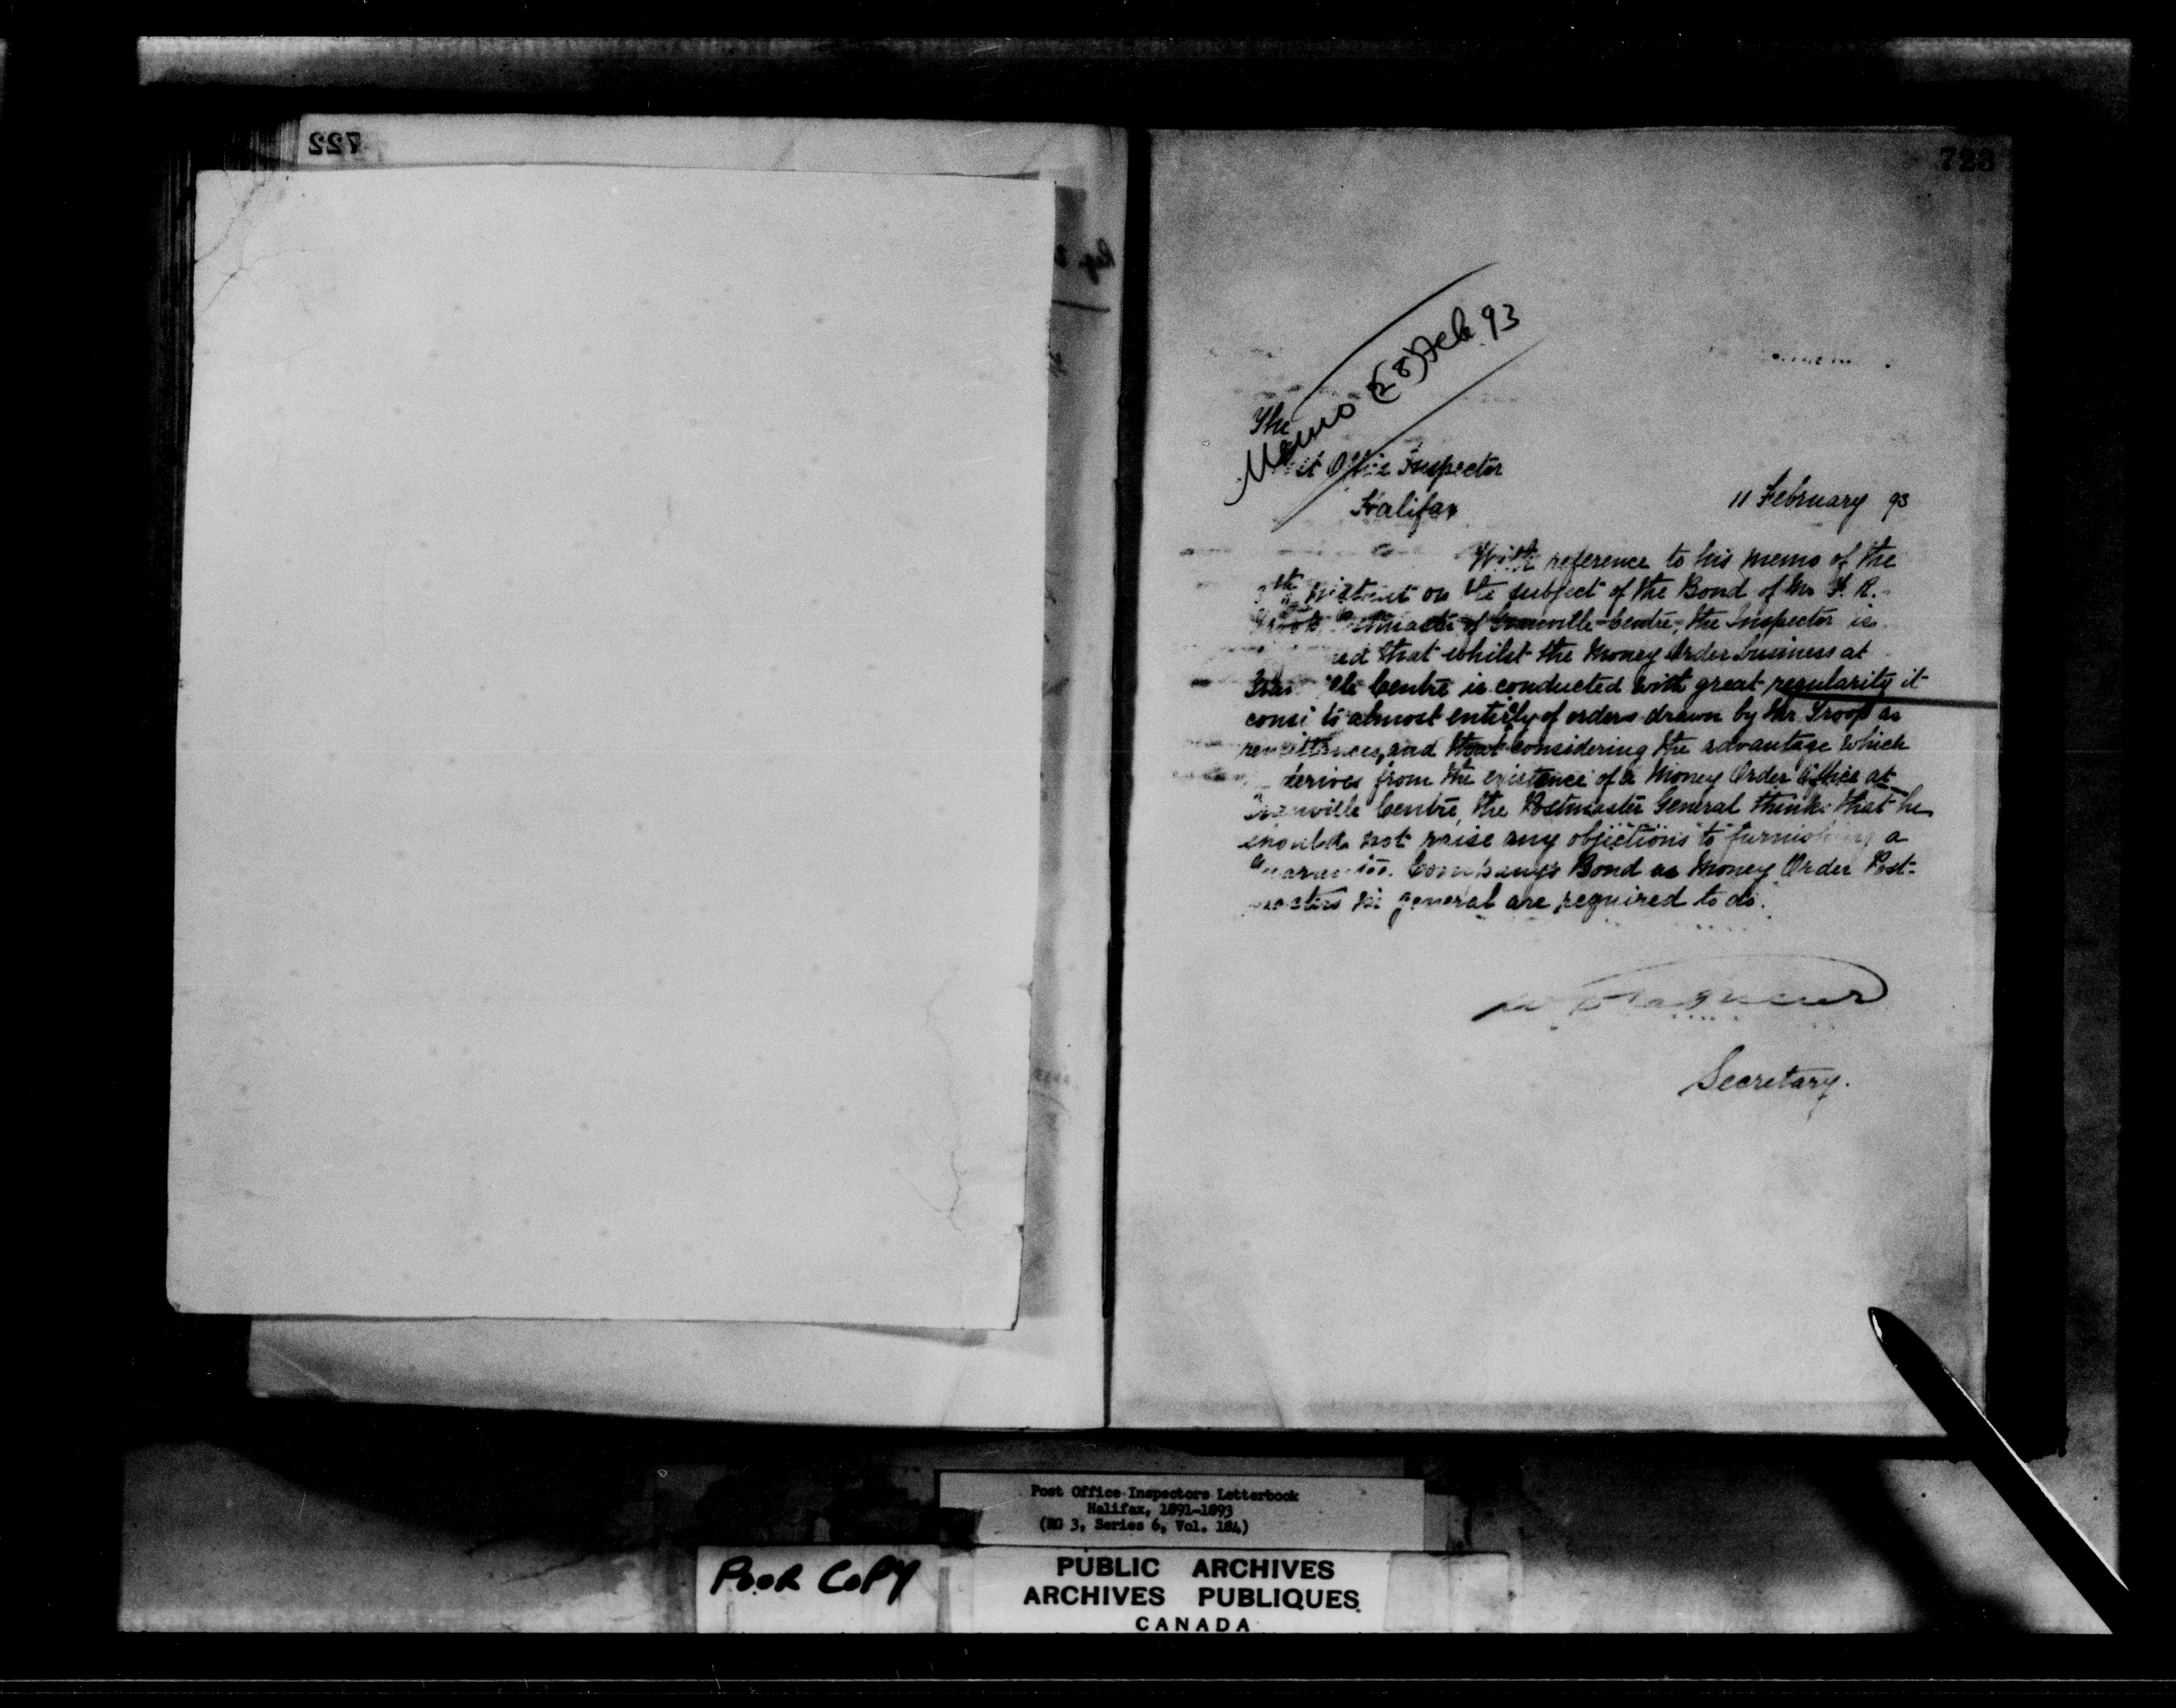 722
723
Memo (28) Feb 93
The
Post Office Inspector
Halifax
11 February 93
With reference to his memo of the
th instant on the subject of the Bond of Mr F. R.
Troop Postmaster of Granville Centre, the Inspector is
that whilst the Money Order business at
Granville Centre is conducted with great regularity it
consists almost entirely of orders drawn by Mr Troop as
remittances, and that considering the advantage which
derives from the existence of a Money Order Office at
Granville Centre, the Postmaster General thinks that he
should not raise any objections to furnishing a
Guarantee Company's Bond as Money Order Post-
masters in general are required to do.
Secretary.
Post Office Inspectors Letterbook
Halifax, 1891-1893
(RG 3, Series 6, Vol. 184)
POOR COPY
PUBLIC ARCHIVES
ARCHIVES PUBLIQUES
CANADA